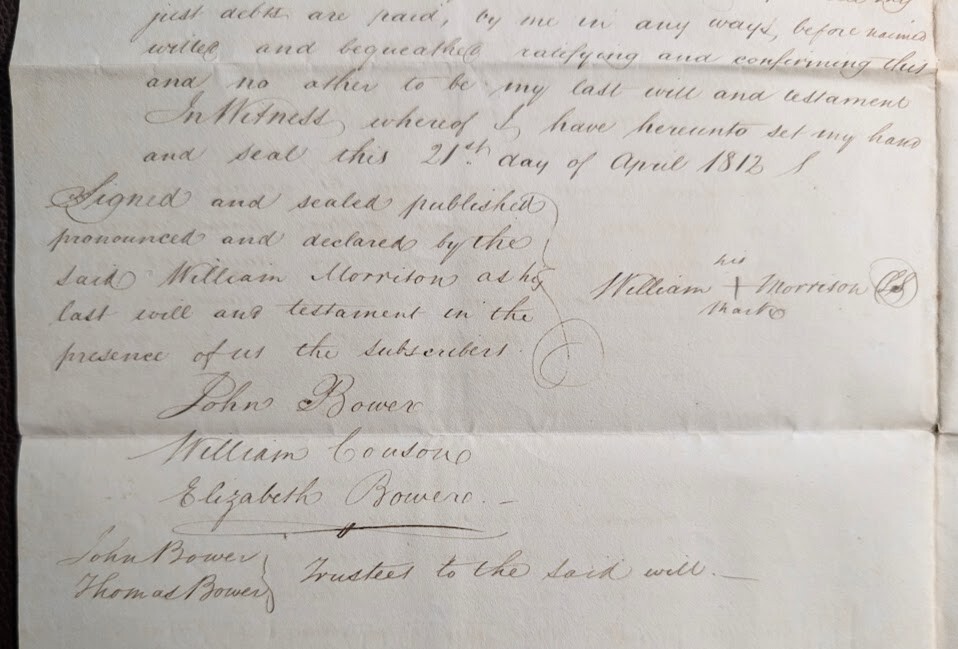 just debts are paid, by me in any ways, before named
written and bequeathed ratifying and confirming this
and no other to be my last will and testament
In Witness whereof I have hereunto set my hand
and seal this 21st day of April 1812
Signed and sealed published
pronounced and declared by the
said William Morrison as his
last will and testament in the
presence of us the subscribers
his
William + Morrison LS
mark
John Bower
William Couson
Elizabeth Bower
John Bower
Thomas Bower
Trustees to the said will.